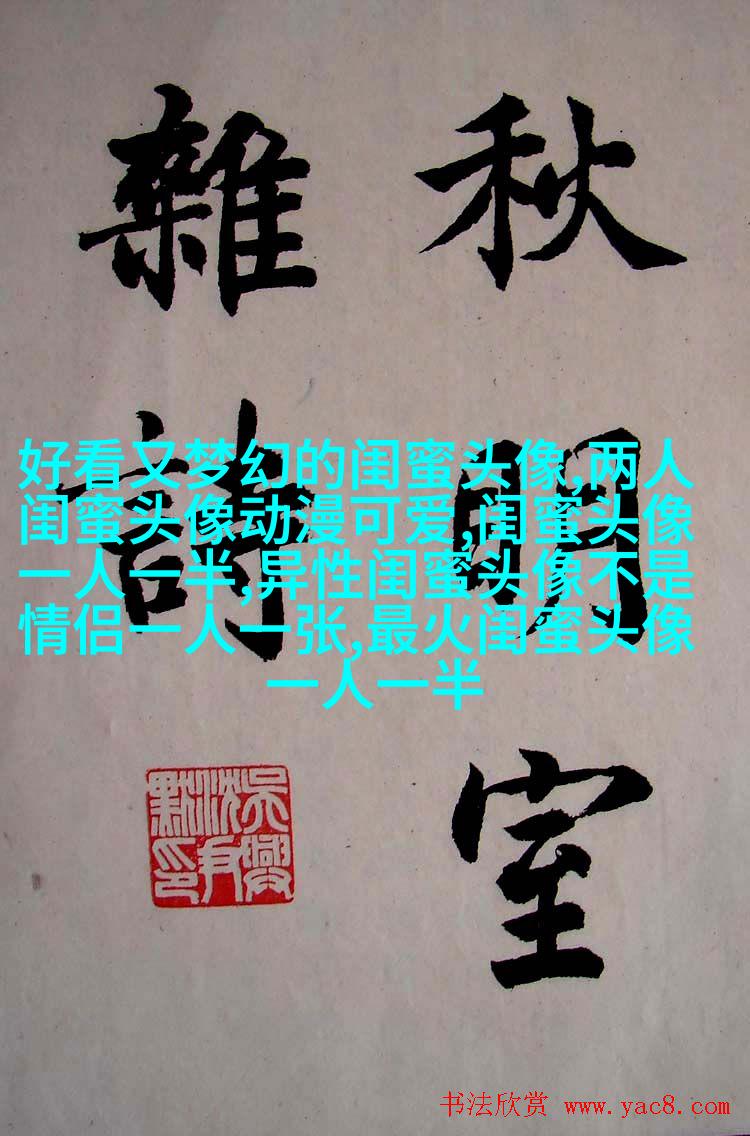 秋明室
雜詩
好看又梦幻的闺蜜头像,两人
闺蜜头像动漫可爱,闺蜜头像
一人一半,异性闺蜜头像不是
情侣一人一张,最火闺蜜头像
一人一半
吳興
沈尹
默印
书法欣赏 www.yac8.com